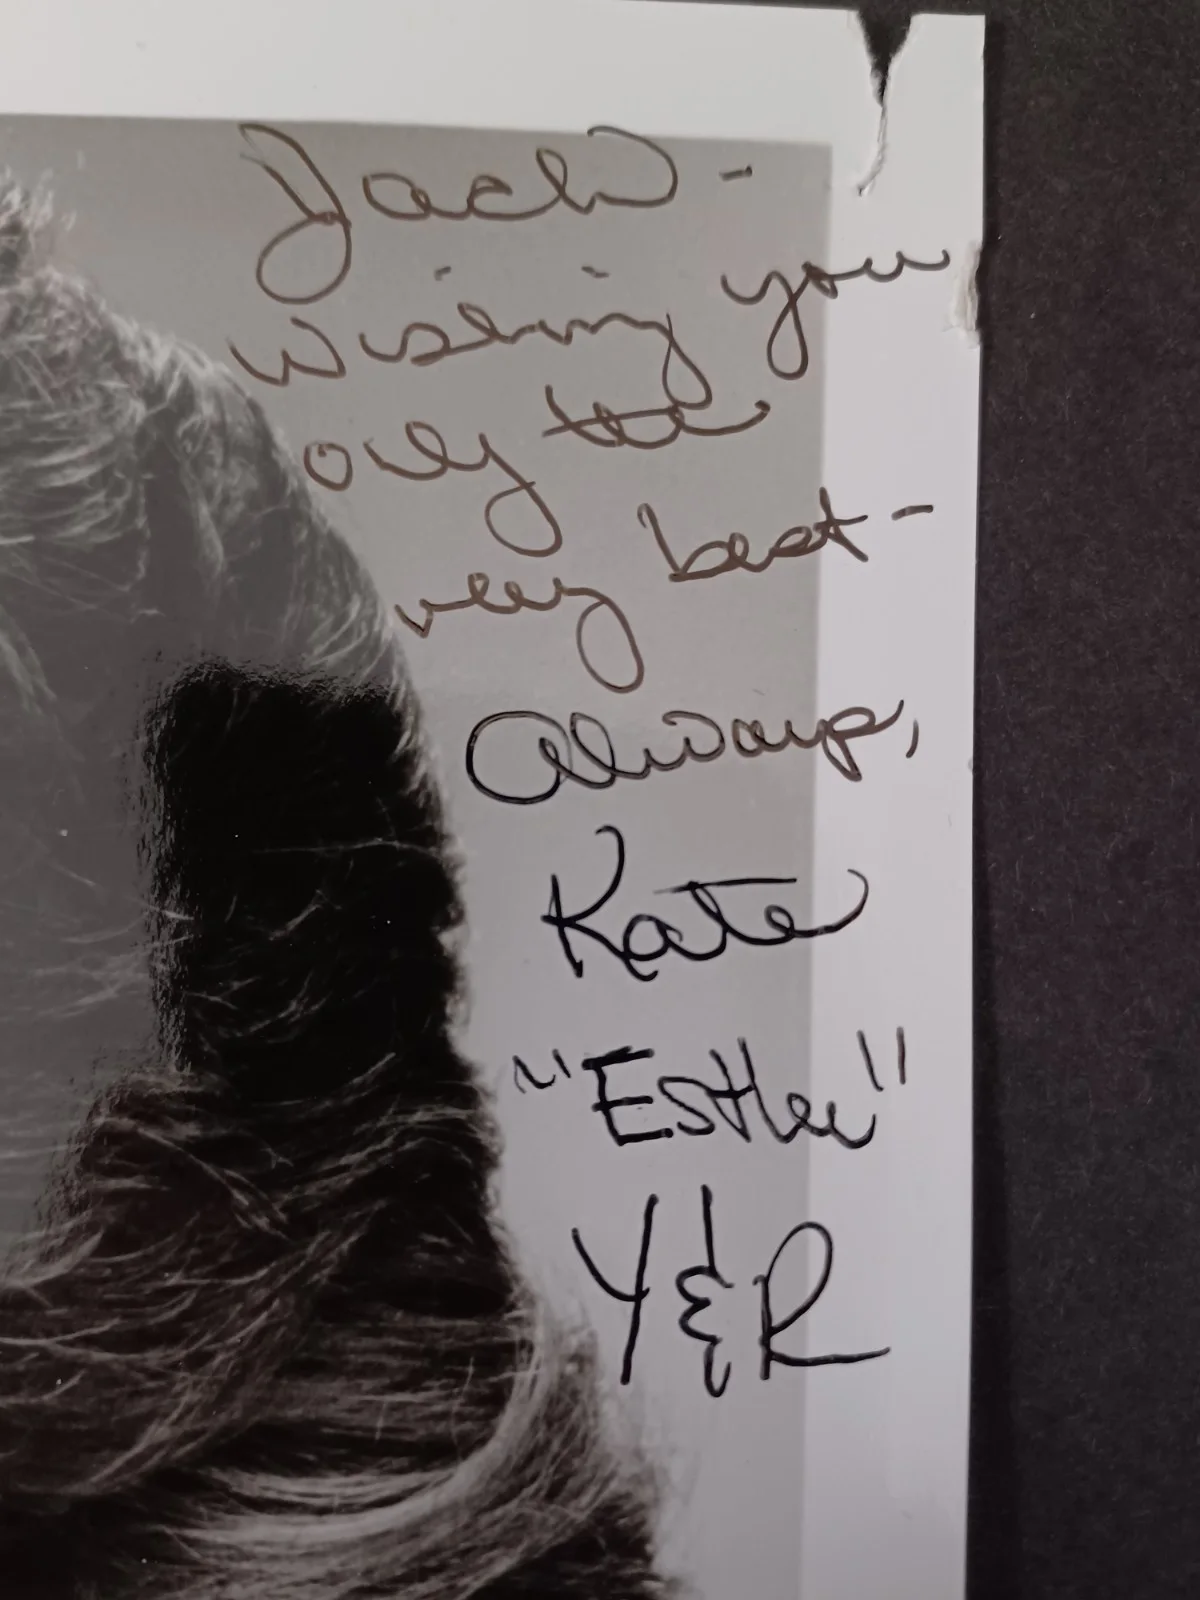 Jack -
Wishing you
only the
very best -
Always,
Kate
"Esther"
Y & R